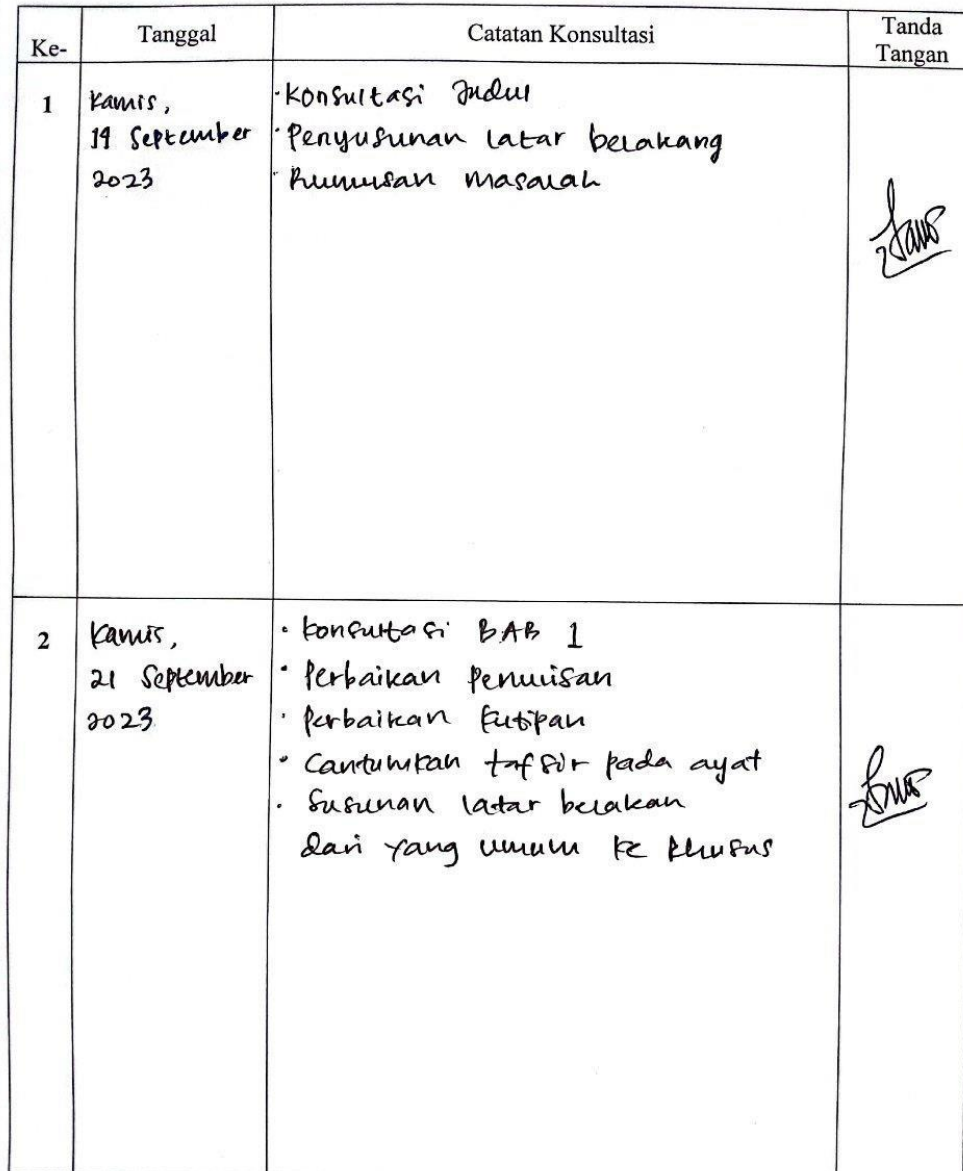 Ke- Tanggal Catatan Konsultasi Tanda Tangan
1
Kamis,
19 September
2023
·Konsultasi Judul
·Penyusunan latar belakang
·Rumusan masalah
2
Kamis,
21 September
2023
· Konsultasi BAB 1
· Perbaikan Penulisan
· Perbaikan kutipan
· Cantumkan tafsir pada ayat
· Susunan latar belakan
dari yang umum ke khusus